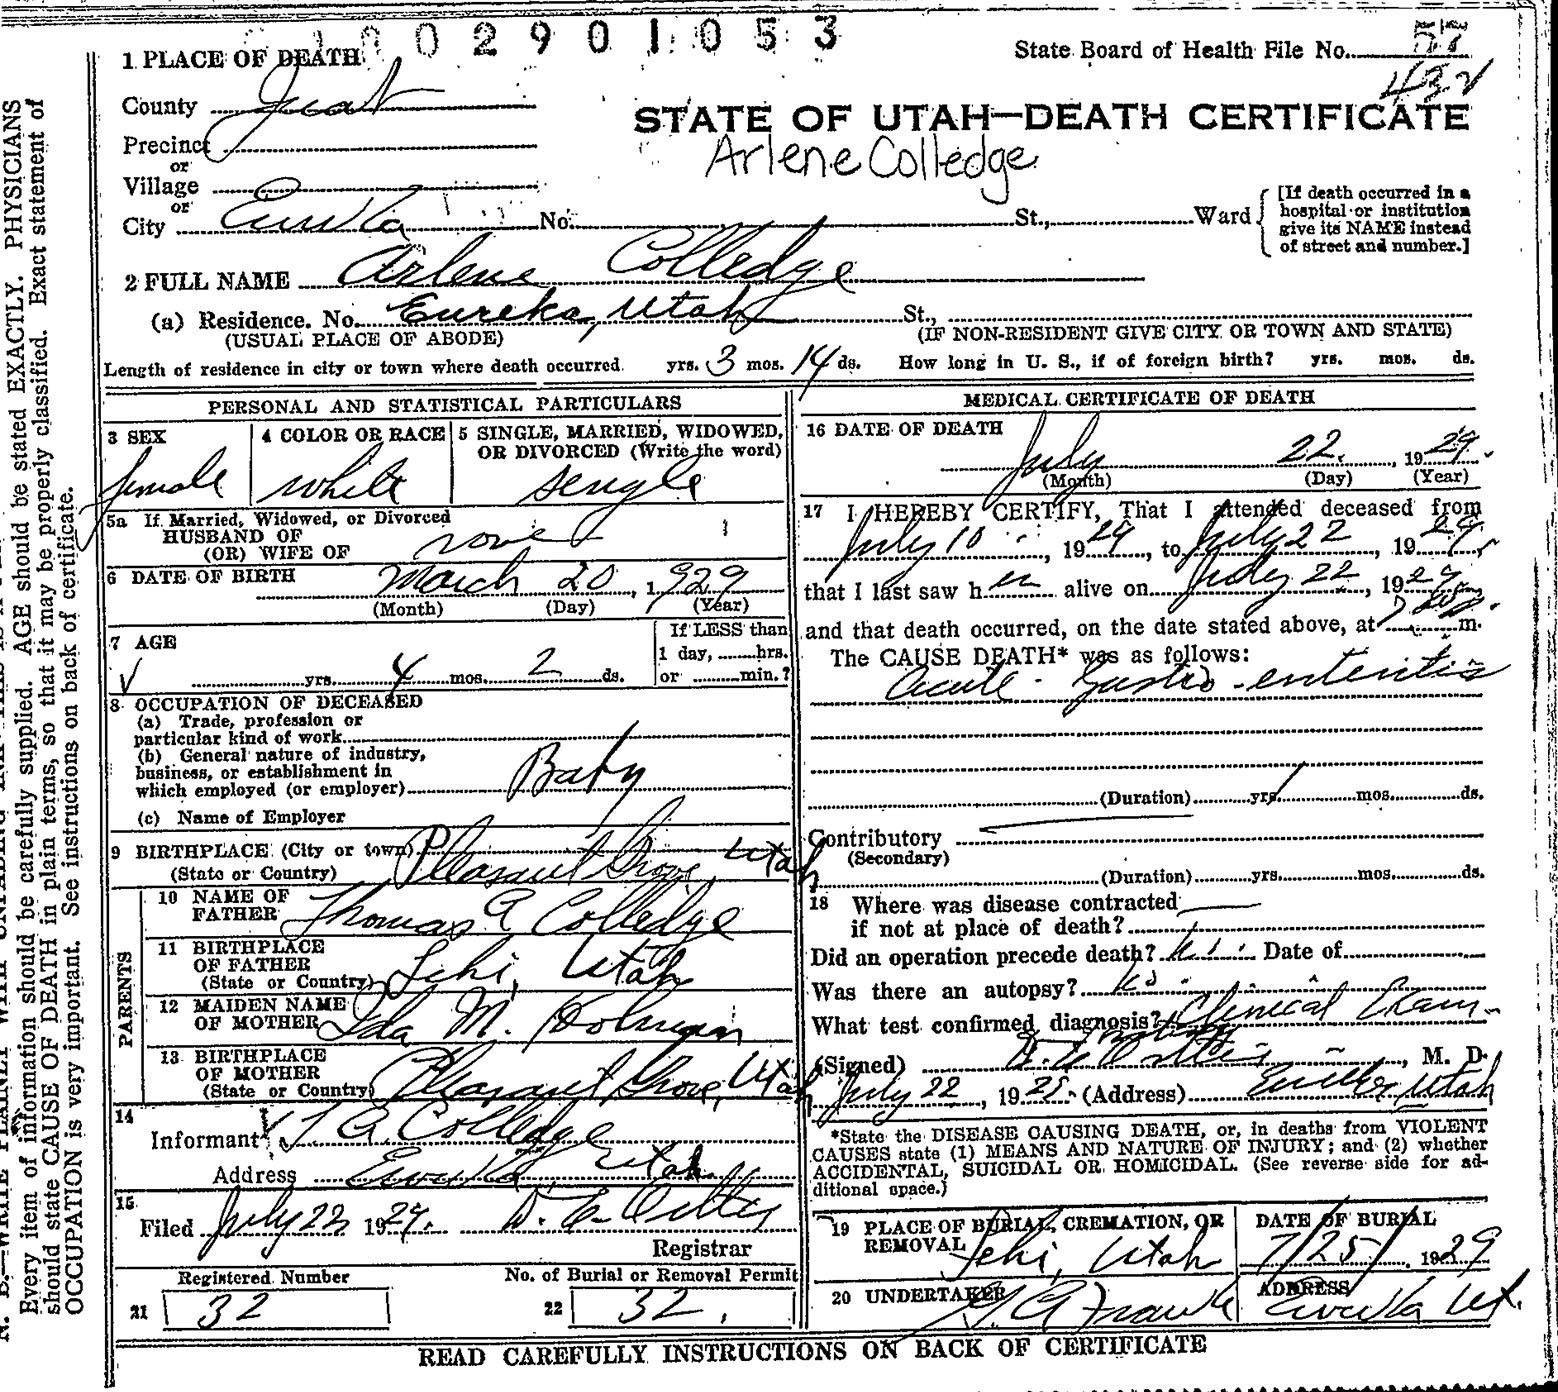 0 0 2 9 0 1 0 5 3
State Board of Health File No. 57
432
1 PLACE OF DEATH
County Juab
STATE OF UTAH—DEATH CERTIFICATE
Precinct
or
Arlene Colledge
Village
or
City Eureka No. St., Ward
[If death occurred in a
hospital or institution
give its NAME instead
of street and number.]
2 FULL NAME Arlene Colledge
(a) Residence. No. Eureka, Utah St.,
(USUAL PLACE OF ABODE) (IF NON-RESIDENT GIVE CITY OR TOWN AND STATE)
Length of residence in city or town where death occurred yrs. 3 mos. 14 ds. How long in U. S., if of foreign birth? yrs. mos. ds.
PERSONAL AND STATISTICAL PARTICULARS
3 SEX 4 COLOR OR RACE 5 SINGLE, MARRIED, WIDOWED,
OR DIVORCED (Write the word)
female white single
5a If Married, Widowed, or Divorced
HUSBAND OF
(OR) WIFE OF none
6 DATE OF BIRTH March 20, 1929
(Month) (Day) (Year)
7 AGE If LESS than
1 day, hrs.
yrs. 4 mos. 2 ds. or min.?
8 OCCUPATION OF DECEASED
(a) Trade, profession or
particular kind of work
(b) General nature of industry,
business, or establishment in
which employed (or employer) Baby
(c) Name of Employer
9 BIRTHPLACE (City or town) Pleasant Grove, Utah
(State or Country)
PARENTS
10 NAME OF
FATHER Thomas A Colledge
11 BIRTHPLACE
OF FATHER
(State or Country) Lehi, Utah
12 MAIDEN NAME
OF MOTHER Ida M. Holman
13 BIRTHPLACE
OF MOTHER
(State or Country) Pleasant Grove, Utah
14
Informant T A Colledge
Address Eureka Utah
15
Filed July 22, 1929.
Registrar
Registered Number No. of Burial or Removal Permit
21 32 22 32.
MEDICAL CERTIFICATE OF DEATH
16 DATE OF DEATH
July 22, 1929.
(Month) (Day) (Year)
17 I HEREBY CERTIFY, That I attended deceased from
July 10, 1929, to July 22, 1929,
that I last saw her alive on July 22, 1929
and that death occurred, on the date stated above, at m.
The CAUSE DEATH* was as follows:
Acute Gastro-enteritis
(Duration) yrs. mos. ds.
Contributory
(Secondary)
(Duration) yrs. mos. ds.
18 Where was disease contracted
if not at place of death?
Did an operation precede death? No Date of
Was there an autopsy? No
What test confirmed diagnosis? Clinical Exam.
(Signed) , M. D.
July 22, 19 (Address) Eureka, Utah
*State the DISEASE CAUSING DEATH, or, in deaths from VIOLENT
CAUSES state (1) MEANS AND NATURE OF INJURY; and (2) whether
ACCIDENTAL, SUICIDAL OR HOMICIDAL. (See reverse side for ad-
ditional space.)
19 PLACE OF BURIAL, CREMATION, OR DATE OF BURIAL
REMOVAL Lehi, Utah 7/25/ 1929
20 UNDERTAKER ADDRESS
Eureka Ut.
READ CAREFULLY INSTRUCTIONS ON BACK OF CERTIFICATE
Every item of information should be carefully supplied. AGE should be stated EXACTLY. PHYSICIANS
should state CAUSE OF DEATH in plain terms, so that it may be properly classified. Exact statement of
OCCUPATION is very important. See instructions on back of certificate.